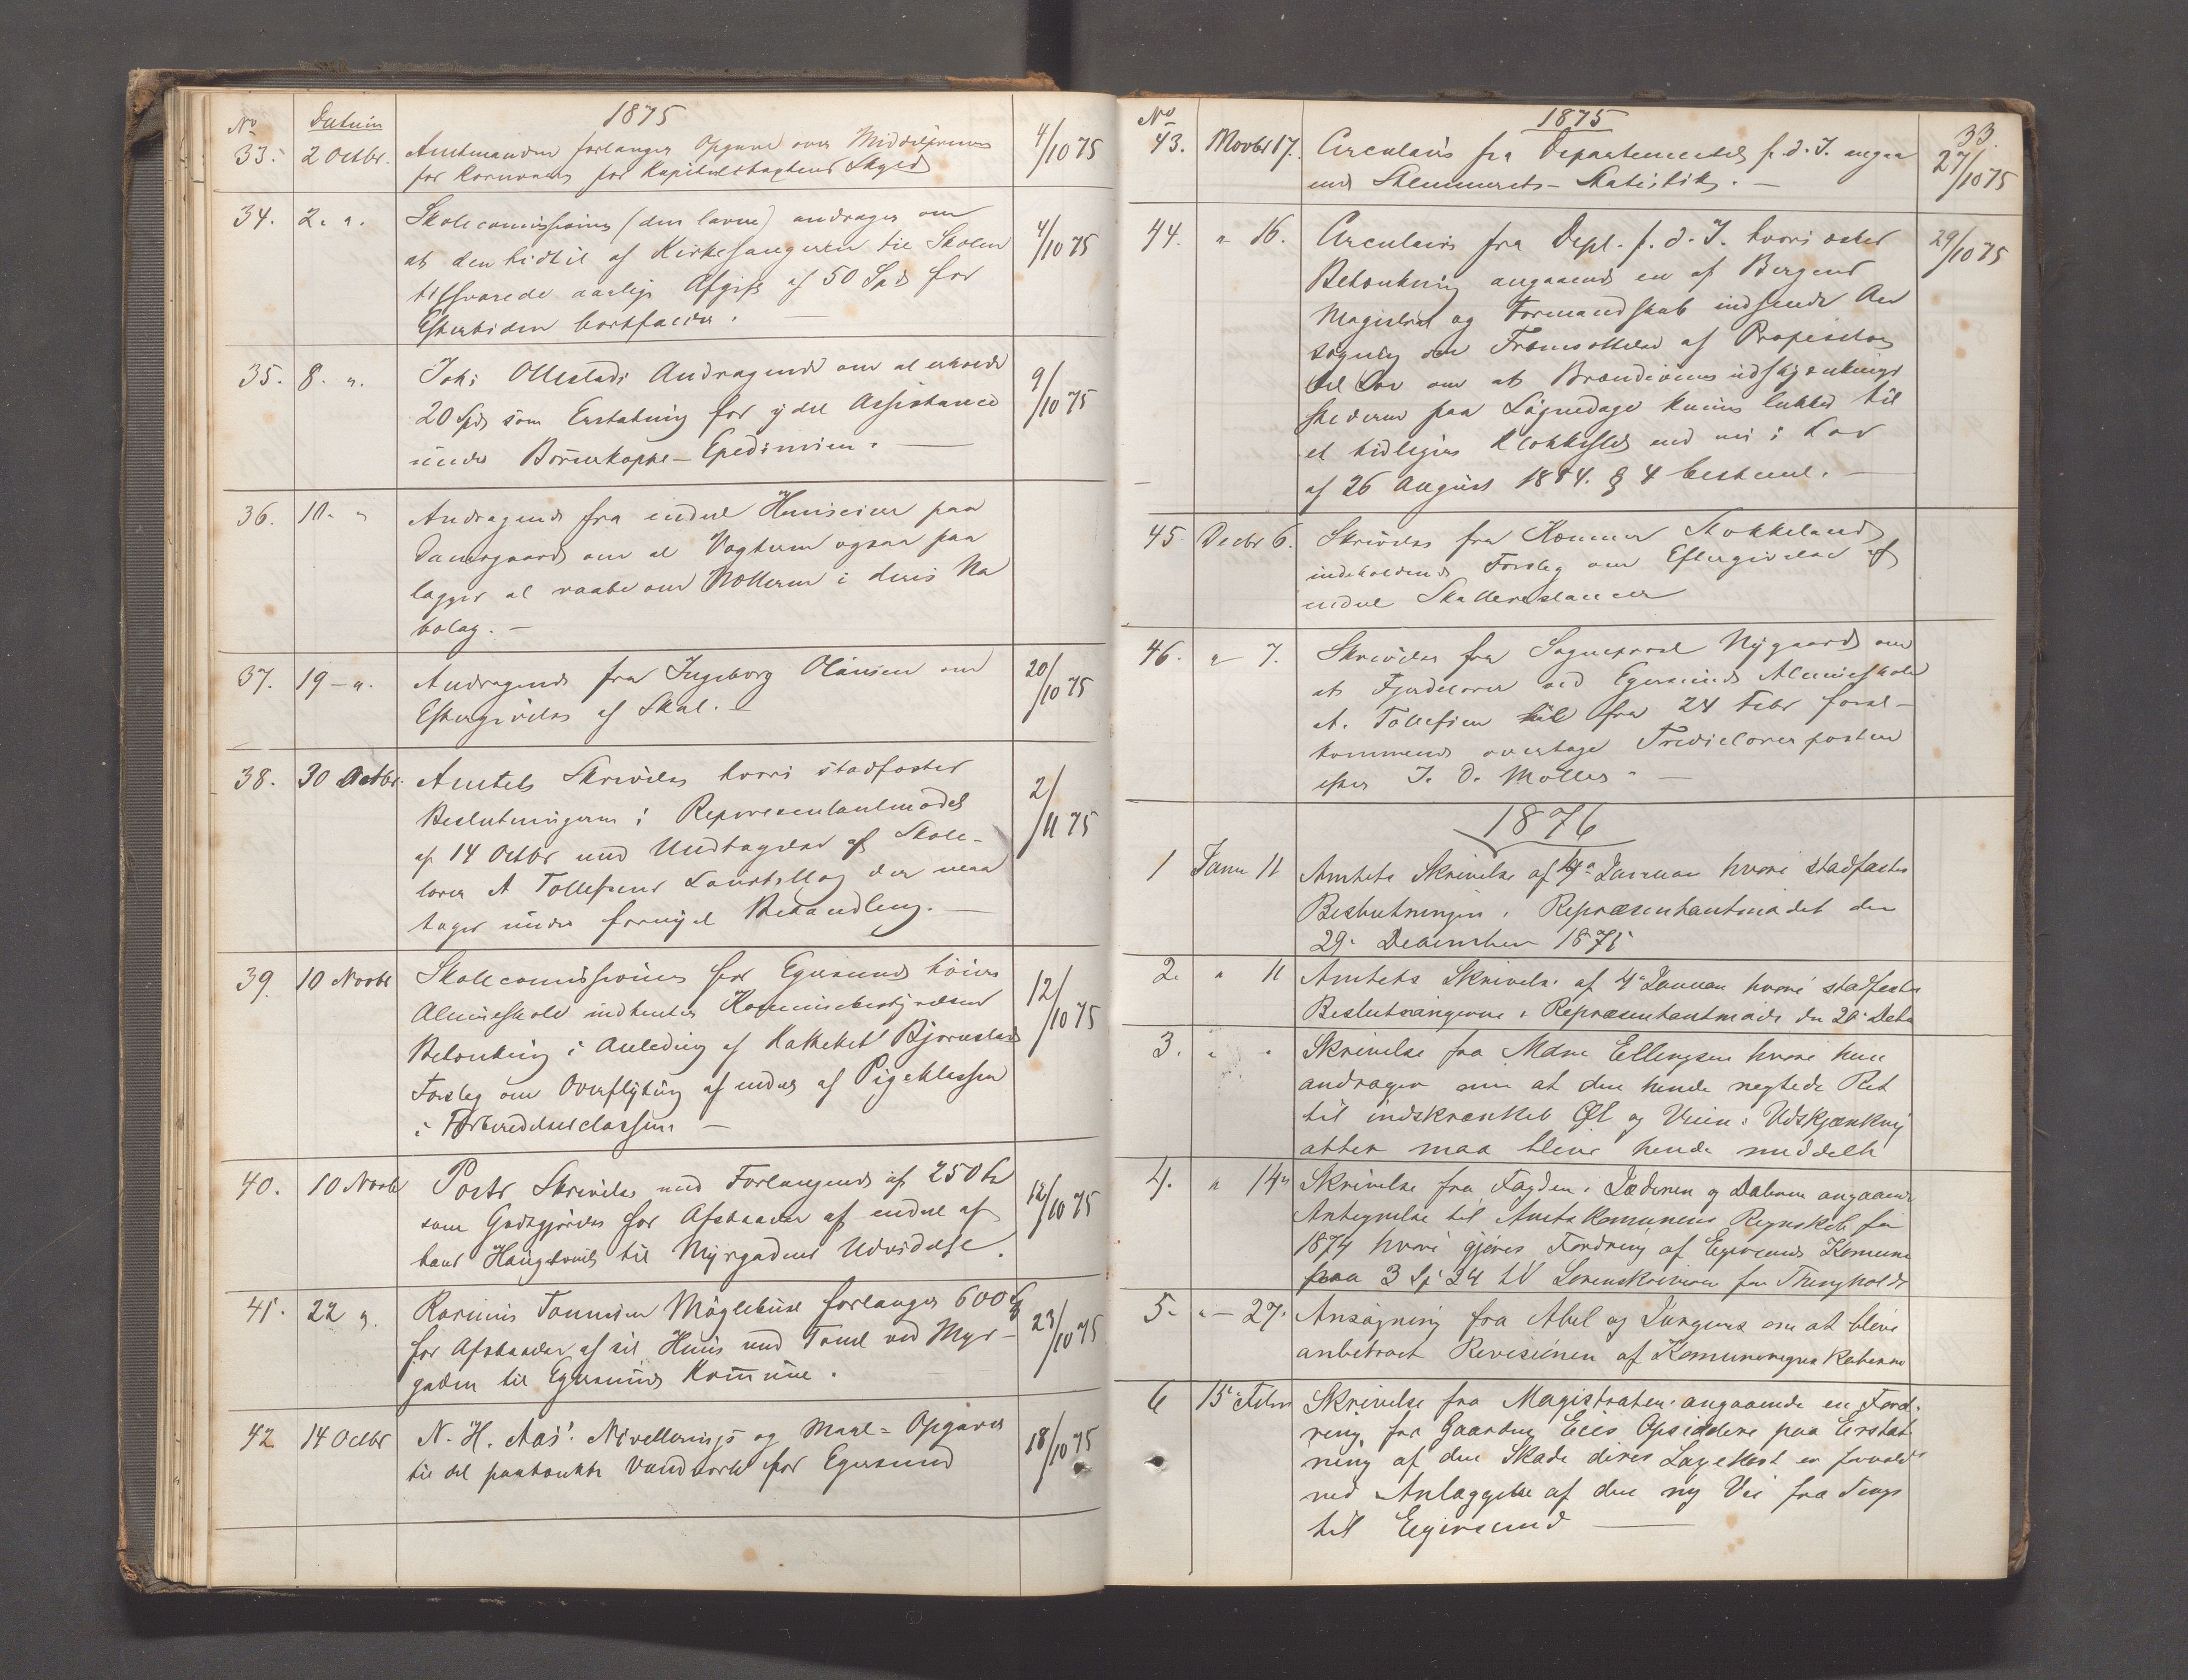 No Datum 1875
33. 2 Octbr. Amtmanden forlanger Opgave over Middelpriserne 4/10 75
for Kornvarer for Kapitelstaxtens Skyld
34. 2. ". Skolecommissionen (den lavere) andrager om 4/10 75
at den hidtil af Kirkesangeren til Skolen
tilsvarede aarlige Afgift af 50 Spd for
Eftertiden bortfalder. —
35. 8. ". Johs Ollestads Andragende om at erholde 9/10 75
20 Spd som Erstatning for ydet Assistance
under Børnekoppe-Epedimien. —
36. 10. " Andragende fra endeel Huuseiere paa
Damsgaard om at Vægterne ogsaa paa
lægges at raabe om Nætterne i deres Na
bolag. —
37. 19 — ". Andragende fra Ingeborg Olausen om 20/10 75
Eftergivelse af Skat. —
38. 30 Octbr. Amtets Skrivelse hvori stadfæstes 2/11 75
Beslutningerne i Repræsentantmødet
af 14 Octbr med Undtagelse af Skole-
lærer A Tollefsens Lønstillæg der maa
tages under fornyet Behandling. —
39. 10 Novbr Skolecommissionen for Egersunds høiere 12/10 75
Almueskole indhenter Kommunebestyrelsens
Betænkning i Anledning af Kateket Bjørnstads
Forslag om Overflytning af endeel af Pigeklassen
i Forberedelsesclassen. —
40. 10 Novbr Skrivelse med Forlangende af 250
som Godtgjørelse for Afstaaelse af endeel af
hans Haugetomt til Myrgadens Udvidelse. 12/10 75
41. 22 ". Tønnesen Møglebust forlanger 600 23/10 75
for Afstaaelse af sit Huus med Tomt ved Myr-
gaden til Egersunds Kommune.
42 14 Octbr N. H. Aas' Nivellerings og Maal-Opgaver 18/10 75
til det paatænkte Vandværk for Egersund
No 1875 33.
43. Novbr 17. Circulaire fra Departementet f. d. I. angaa 27/10 75
ende Skummets-Statistik. —
44. " 16. Circulaire fra Dept. f. d. I. hvori æskes 29/10 75
Betænkning angaaende en af Bergens
Magistrat og Formandskab indsendt An
søgning om Fremsættelse af Proposition
til Lov om at Brændevinsudskjænknings
stederne paa Løgnedage kunne lukkes til
et tidligere Klokkeslet end nu i Lov
af 26 August 1854. § 4 bestemt. —
45. Decbr 6. Skrivelse fra Kæmner Stokkeland
indeholdende Forslag om Eftergivelse af
endeel Skatterestancer
46. " 7. Skrivelse fra Sogneprest Nygaard om
at Fjerdelærer ved Egersunds Almueskole
A. Tollefsen fra 24 Febr førest-
kommende overtage Tredielærerposten
efter J. D. Møller. —
1876
1 Janu 11 Amtets Skrivelse af 4de Januar hvori stadfæstes
Beslutningen i Repræsentantmødet den
29. December 1875
2. " 11 Amtets Skrivelse af 4. Januar hvori stadfæstes
Beslutningerne i Repræsentantmøde den 20.
3. " " Skrivelse fra Mdm Ellingsen hvori hun
andrager om at den hende negtede Ret
til indskrænket Øl og Viin: Udskjænkning
atter maa blive hende meddelt
4. " 14 Skrivelse fra Fogden i Jæderen og Dalerne angaaende
Antegnelse til Amts Komunens Regnskab for
1874 hvori gjøres Fordring af Egersunds Komune
paa 3 Sp 24 til Sorenskriveren for Thingholdt
5. " — 27. Ansøgning fra Abel og Jurgens om at blive
anbetroet Revisionen af Komuneregnskaberne
6 15 Febr Skrivelse fra Magistraten angaaende en Ford-
ring fra Gaarden Eies Opsiddere paa Erstat
ning af den Skade deres Laxefiskeri er forvoldt
ved Anlæggelse af den ny Vei fra Tengs
til Egersund —